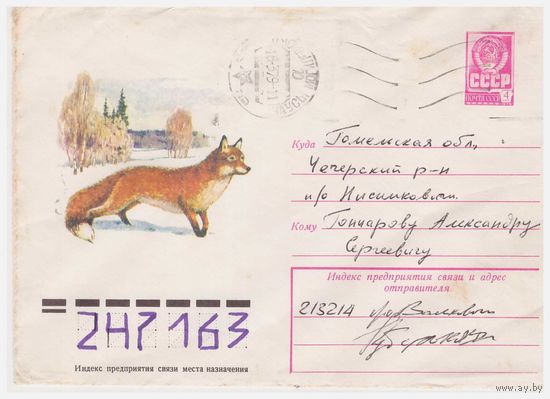 СССР
ПОЧТА СССР 4
Куда Гомельская обл,
Чечерский р-н
п/о Нисимковичи.
Кому Гончарову Александру
Сергеевичу
Индекс предприятия связи и адрес
отправителя
213214
247163
Индекс предприятия связи места назначения
www.ay.by